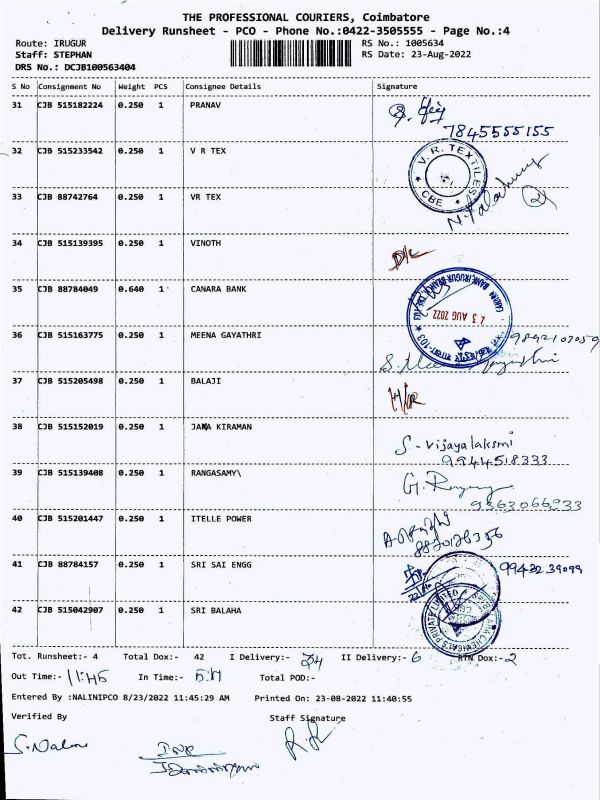 THE PROFESSIONAL COURIERS, Coimbatore
Delivery Runsheet - PCO - Phone No.:0422-3505555 - Page No.:4
Route: IRUGUR
RS No.: 1005634
Staff: STEPHAN
RS Date: 23-Aug-2022
DRS No.: DCJB100563404
S No Consignment No Weight PCS Consignee Details Signature
31 CJB 515182224 0.250 1 PRANAV
7845555155
32 CJB 515233542 0.250 1 V R TEX
V. R. TEXTILES
CBE
33 CJB 88742764 0.250 1 VR TEX
34 CJB 515139395 0.250 1 VINOTH
D/L
35 CJB 88784049 0.640 1 CANARA BANK
23 AUG 2022
36 CJB 515163775 0.250 1 MEENA GAYATHRI
37 CJB 515205498 0.250 1 BALAJI
38 CJB 515152019 0.250 1 JANA KIRAMAN
S - vijayalaksmi
9944518333
39 CJB 515139408 0.250 1 RANGASAMY\
9363066933
40 CJB 515201447 0.250 1 ITELLE POWER
41 CJB 88784157 0.250 1 SRI SAI ENGG
99422 39099
42 CJB 515042907 0.250 1 SRI BALAHA
Tot. Runsheet:- 4 Total Dox:- 42 I Delivery:- 34 II Delivery:- 6 RTN Dox:- 2
Out Time:- 11:45 In Time:- Total POD:-
Entered By :NALINIPCO 8/23/2022 11:45:29 AM Printed On: 23-08-2022 11:40:55
Verified By Staff Signature
S. Nalini